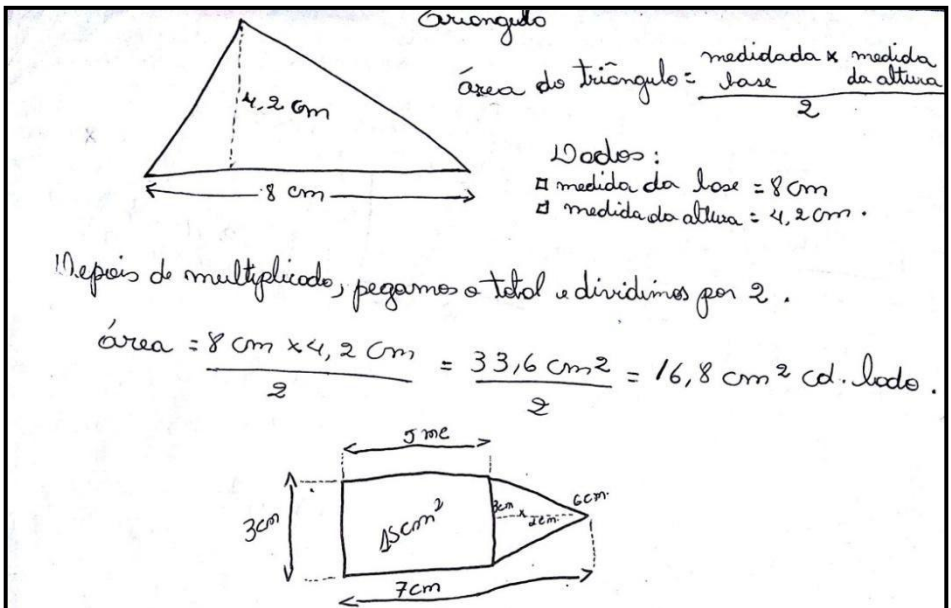 Triangulo
área do triângulo = medidada x medida
base da altura
2
4,2 cm
8 cm
Dados:
medida da base = 8 cm
medida da altura = 4,2 cm.
Depois de multiplicado, pegamos o total e dividimos por 2.
área = 8 cm x 4,2 cm = 33,6 cm2 = 16,8 cm2 cd. lado.
2 2
3cm
15cm2
3cm x 2cm
6cm.
7cm